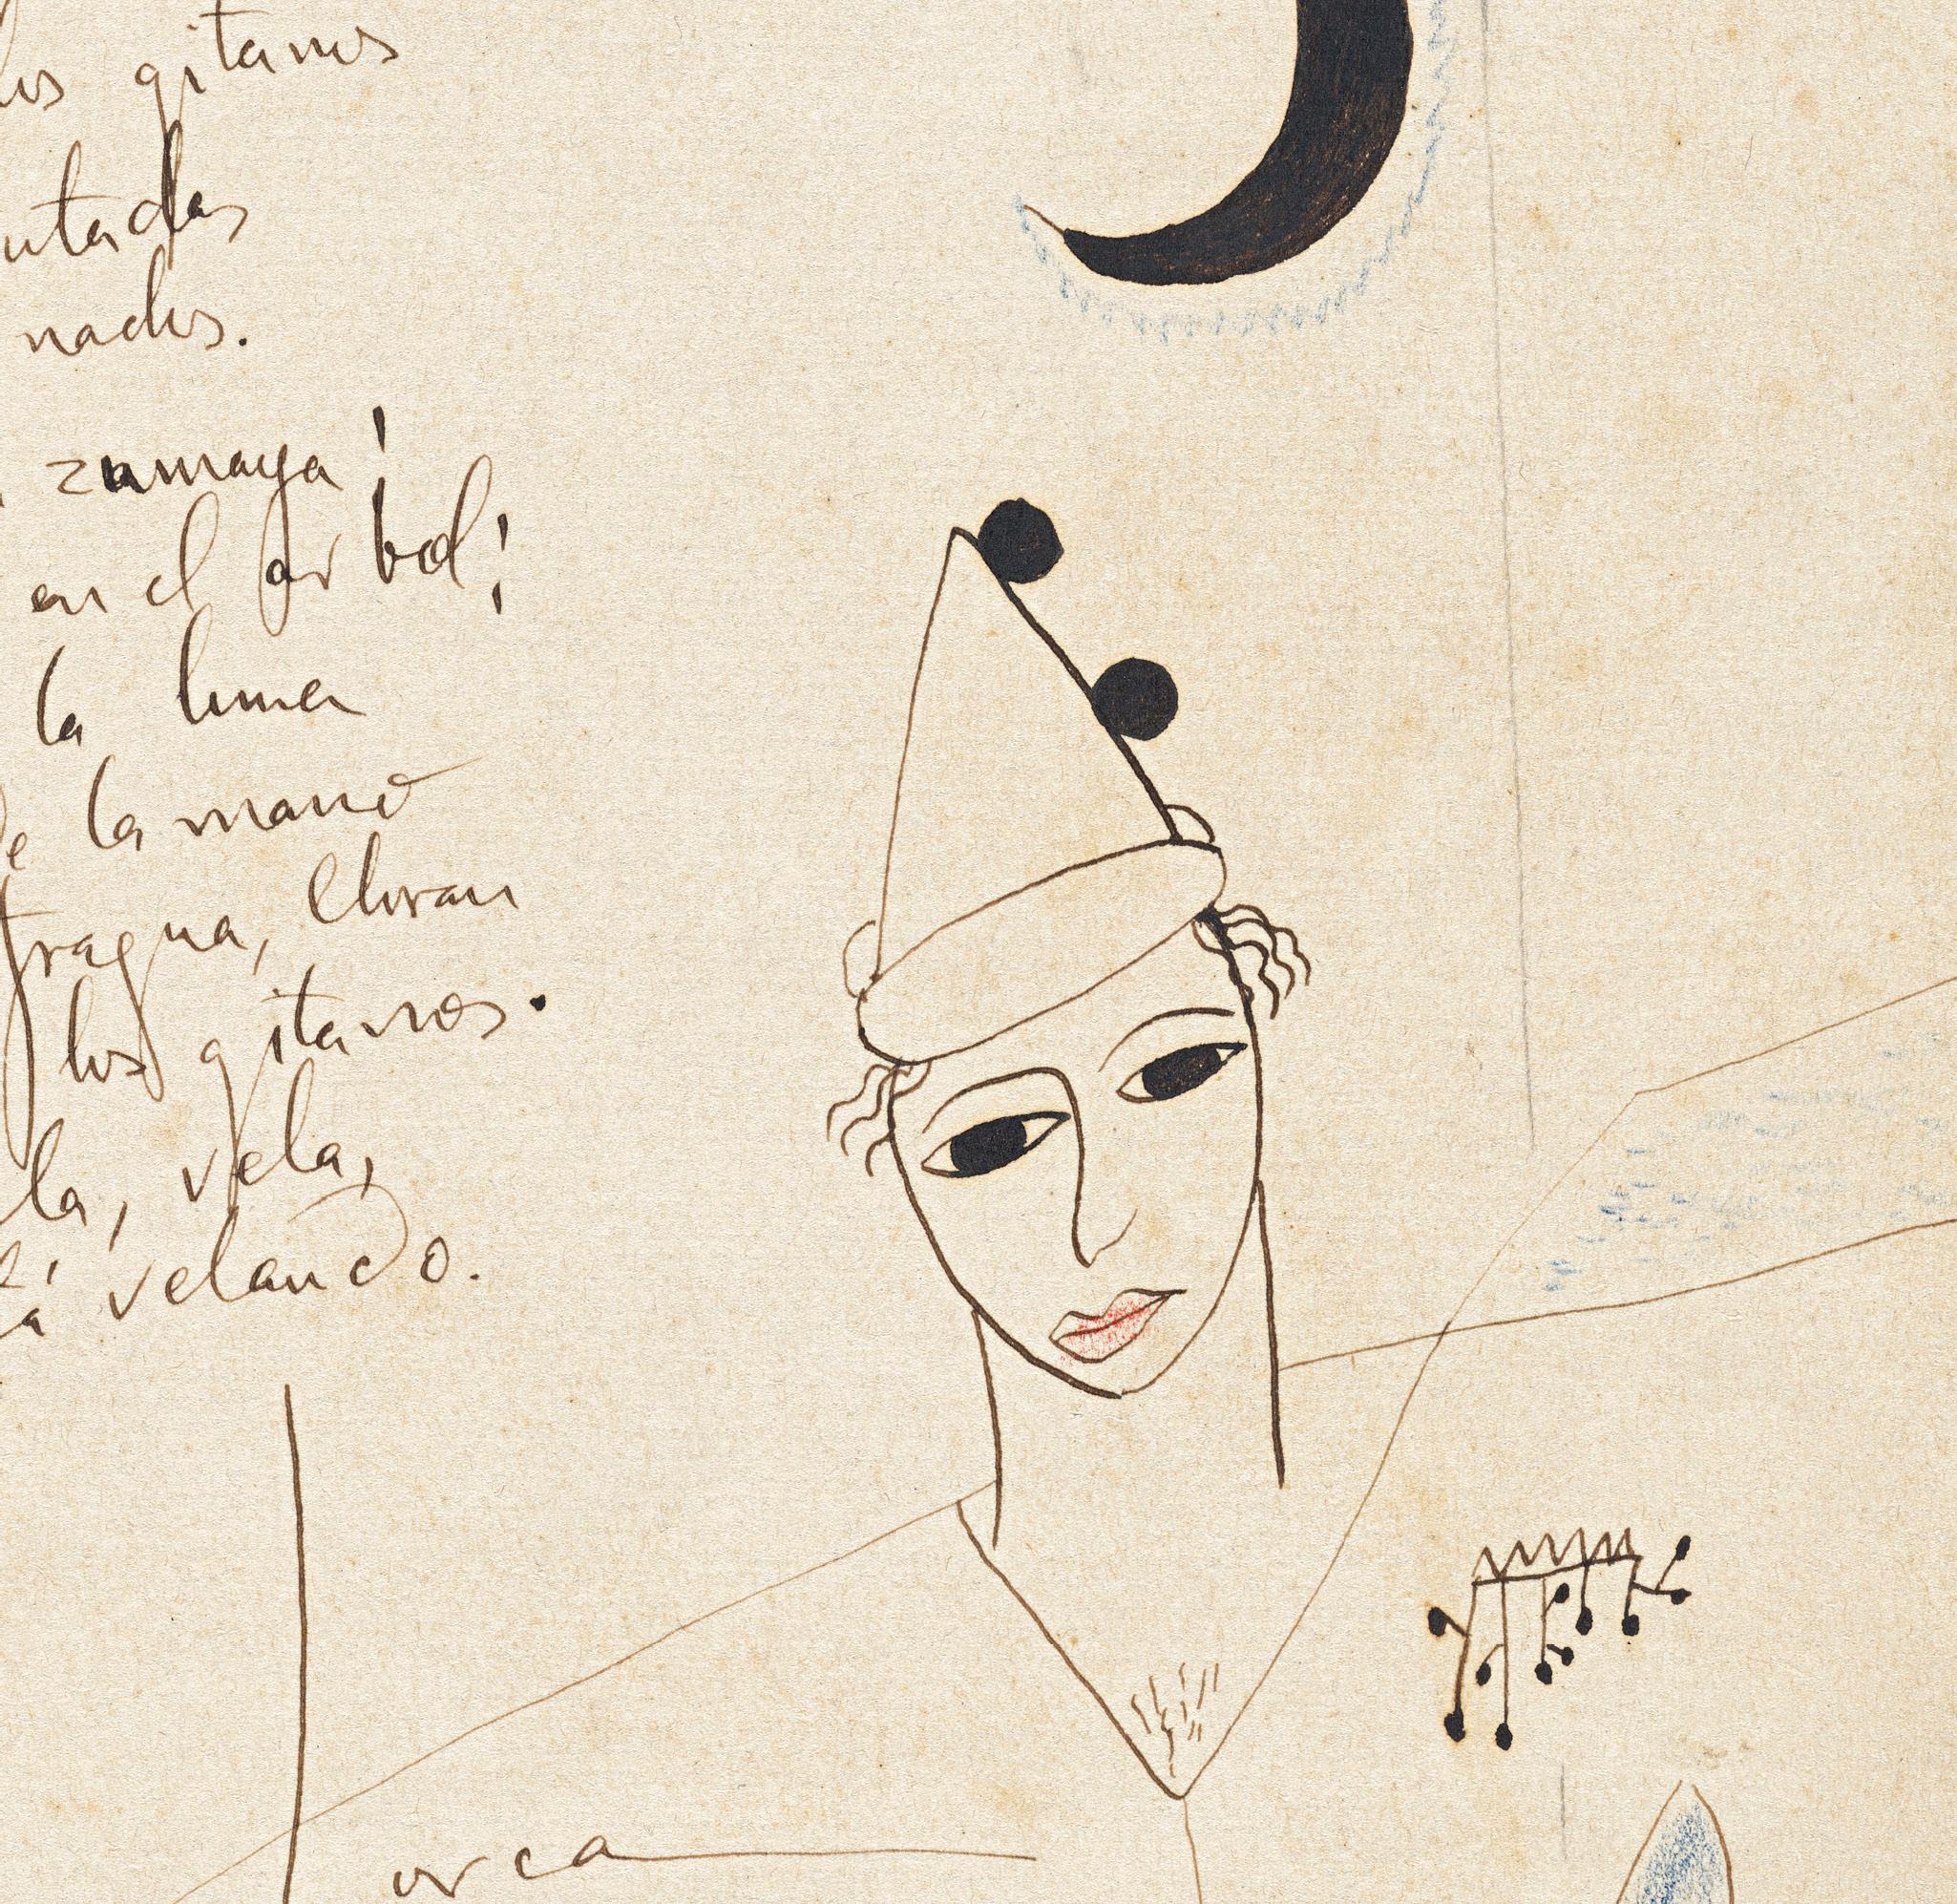 los gitanos
ntadas
nados.
zumaya!
en el arbol!
la luna
de la mano
fragua, lloran
los gitanos.
la, vela,
velando.
orca